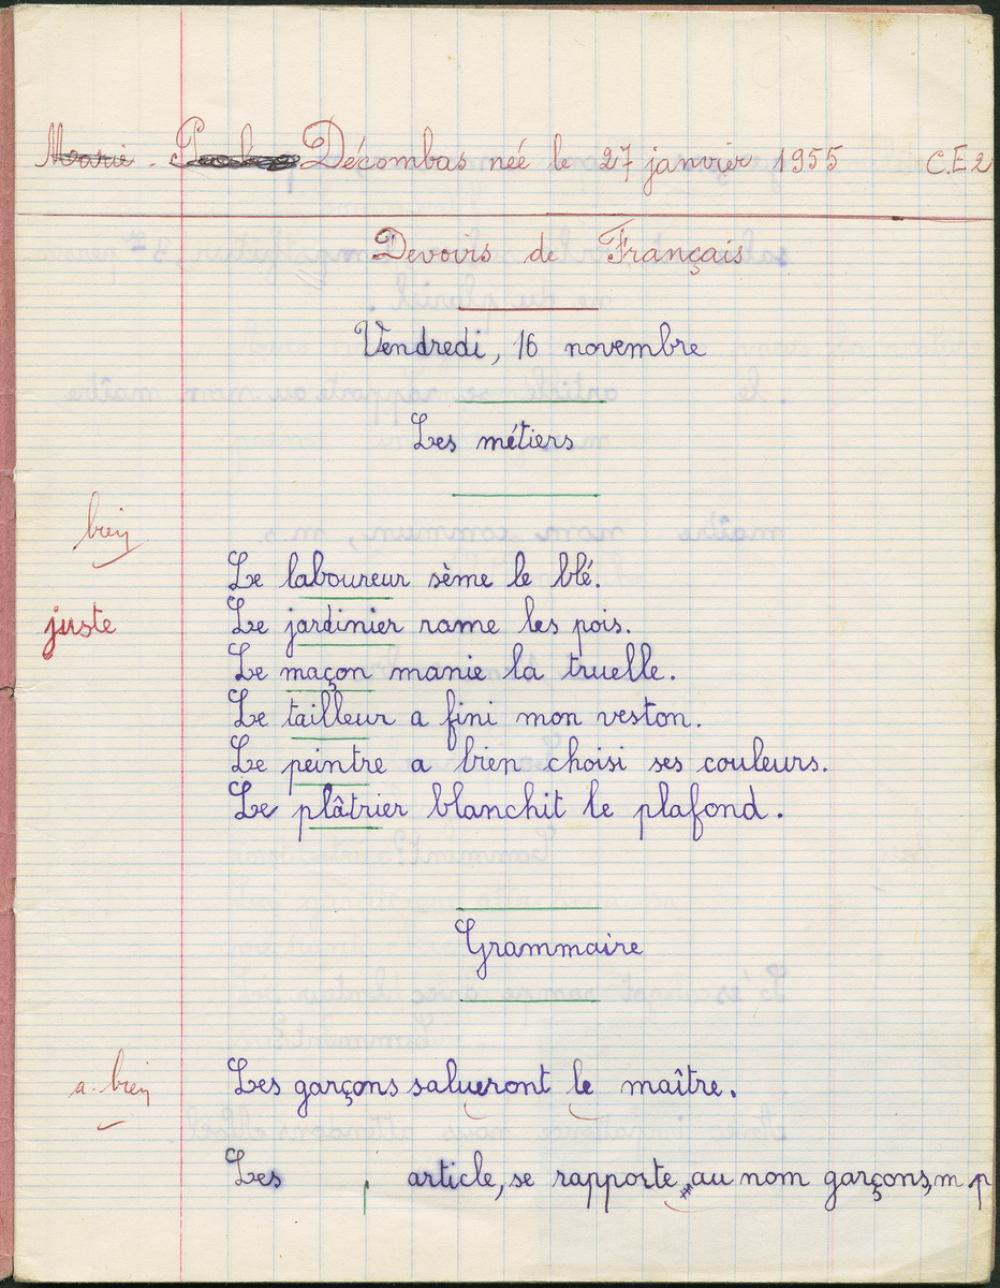 Marie - Décombas née le 27 janvier 1955 C.E2
Devoirs de Français
Vendredi, 16 novembre
Les métiers
bien
Le laboureur sème le blé.
juste
Le jardinier rame les pois.
Le maçon manie la truelle.
Le tailleur a fini mon veston.
Le peintre a bien choisi ses couleurs.
Le plâtrier blanchit le plafond.
Grammaire
a. bien
Les garçons salueront le maître.
Les , article, se rapporte au nom garçons, m p